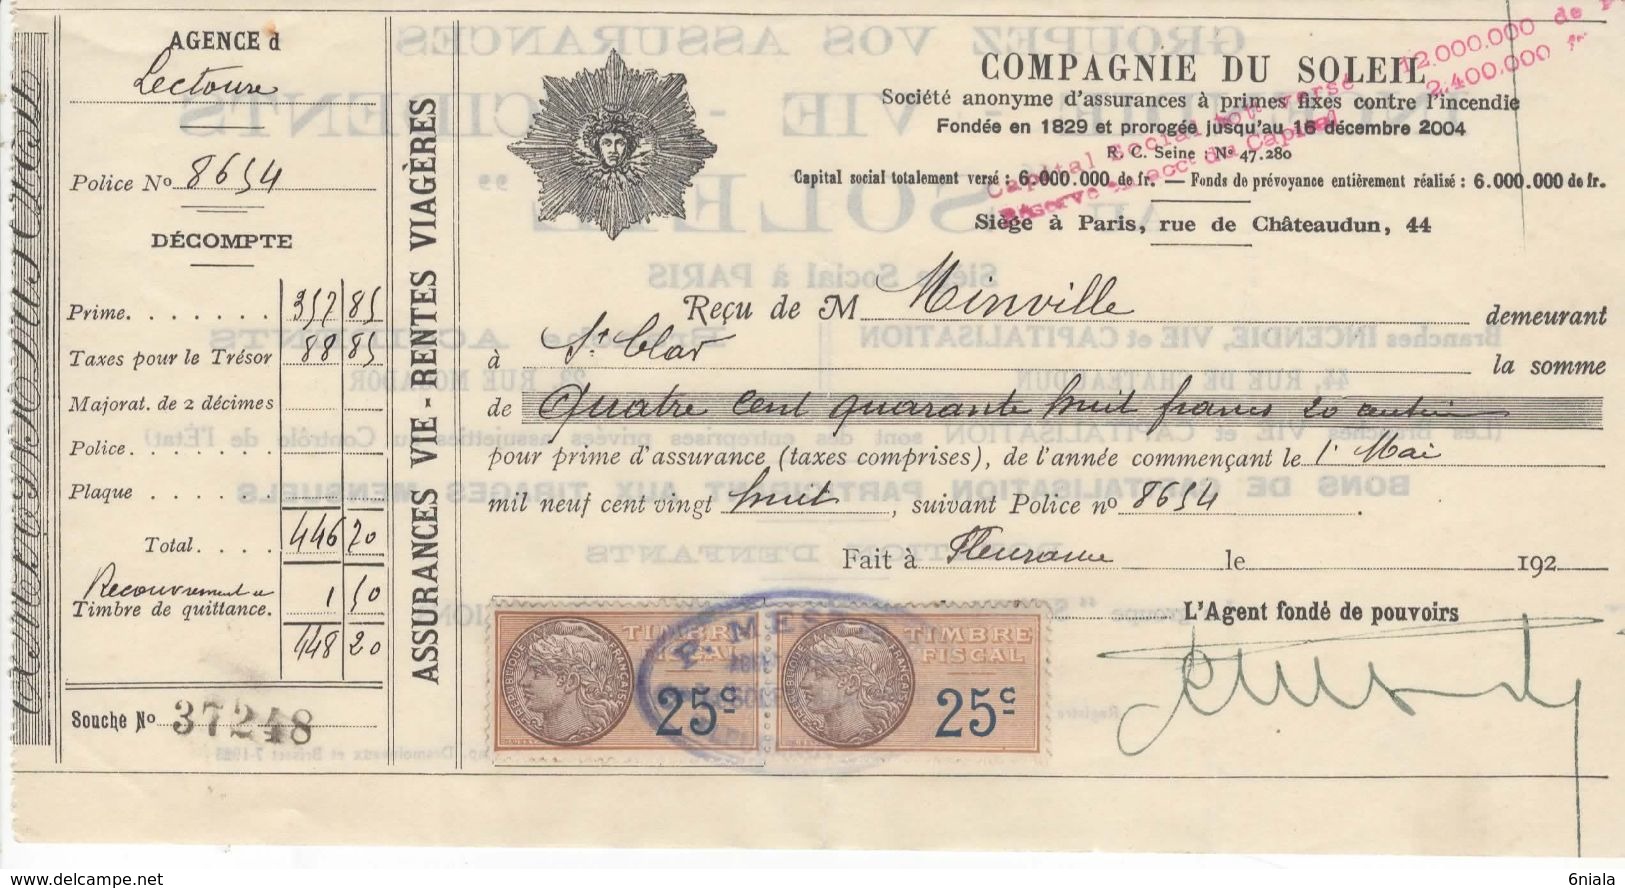 AGENCE d
Lectoure
Police No 8654
DÉCOMPTE
Prime. . . . . . . . 357 85
Taxes pour le Trésor 88 85
Majorat. de 2 décimes
Police. . . . . . . .
Plaque . . . . .
446 70
Total. . . .
Recouvrement
Timbre de quittance. 1 50
448 20
Souche No 37248
ASSURANCES VIE - RENTES VIAGÈRES
COMPAGNIE DU SOLEIL
Société anonyme d'assurances à primes fixes contre l'incendie
Fondée en 1829 et prorogée jusqu'au 16 décembre 2004
R. C. Seine : No 47.280
Capital social totalement versé : 6.000.000 de fr. — Fonds de prévoyance entièrement réalisé : 6.000.000 de fr.
Siège à Paris, rue de Châteaudun, 44
Capital Social tott versé 12.000.000 de F
Réserve acct du Capital 2.400.000
Reçu de M Minville demeurant
à St Clar la somme
de Quatre cent quarante huit francs 20 centimes
pour prime d'assurance (taxes comprises), de l'année commençant le 1r Mai
mil neuf cent vingt huit, suivant Police no 8654.
Fait à Fleurance le 192
L'Agent fondé de pouvoirs
TIMBRE
FISCAL
RÉPUBLIQUE FRANÇAISE
25c
TIMBRE
FISCAL
RÉPUBLIQUE FRANÇAISE
25c
www.delcampe.net
6niala